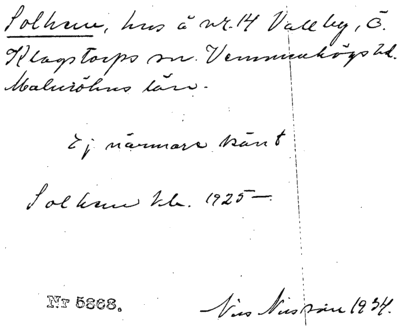 Solhem, hus å nr. 14 Vallby, Ö.
Klagstorps sn. Vemmenhögs hd.
Malmöhus län.
Ej närmare känt
Solhem kb. 1925 —
Nr 5868.
Nils Nilsson 1934.